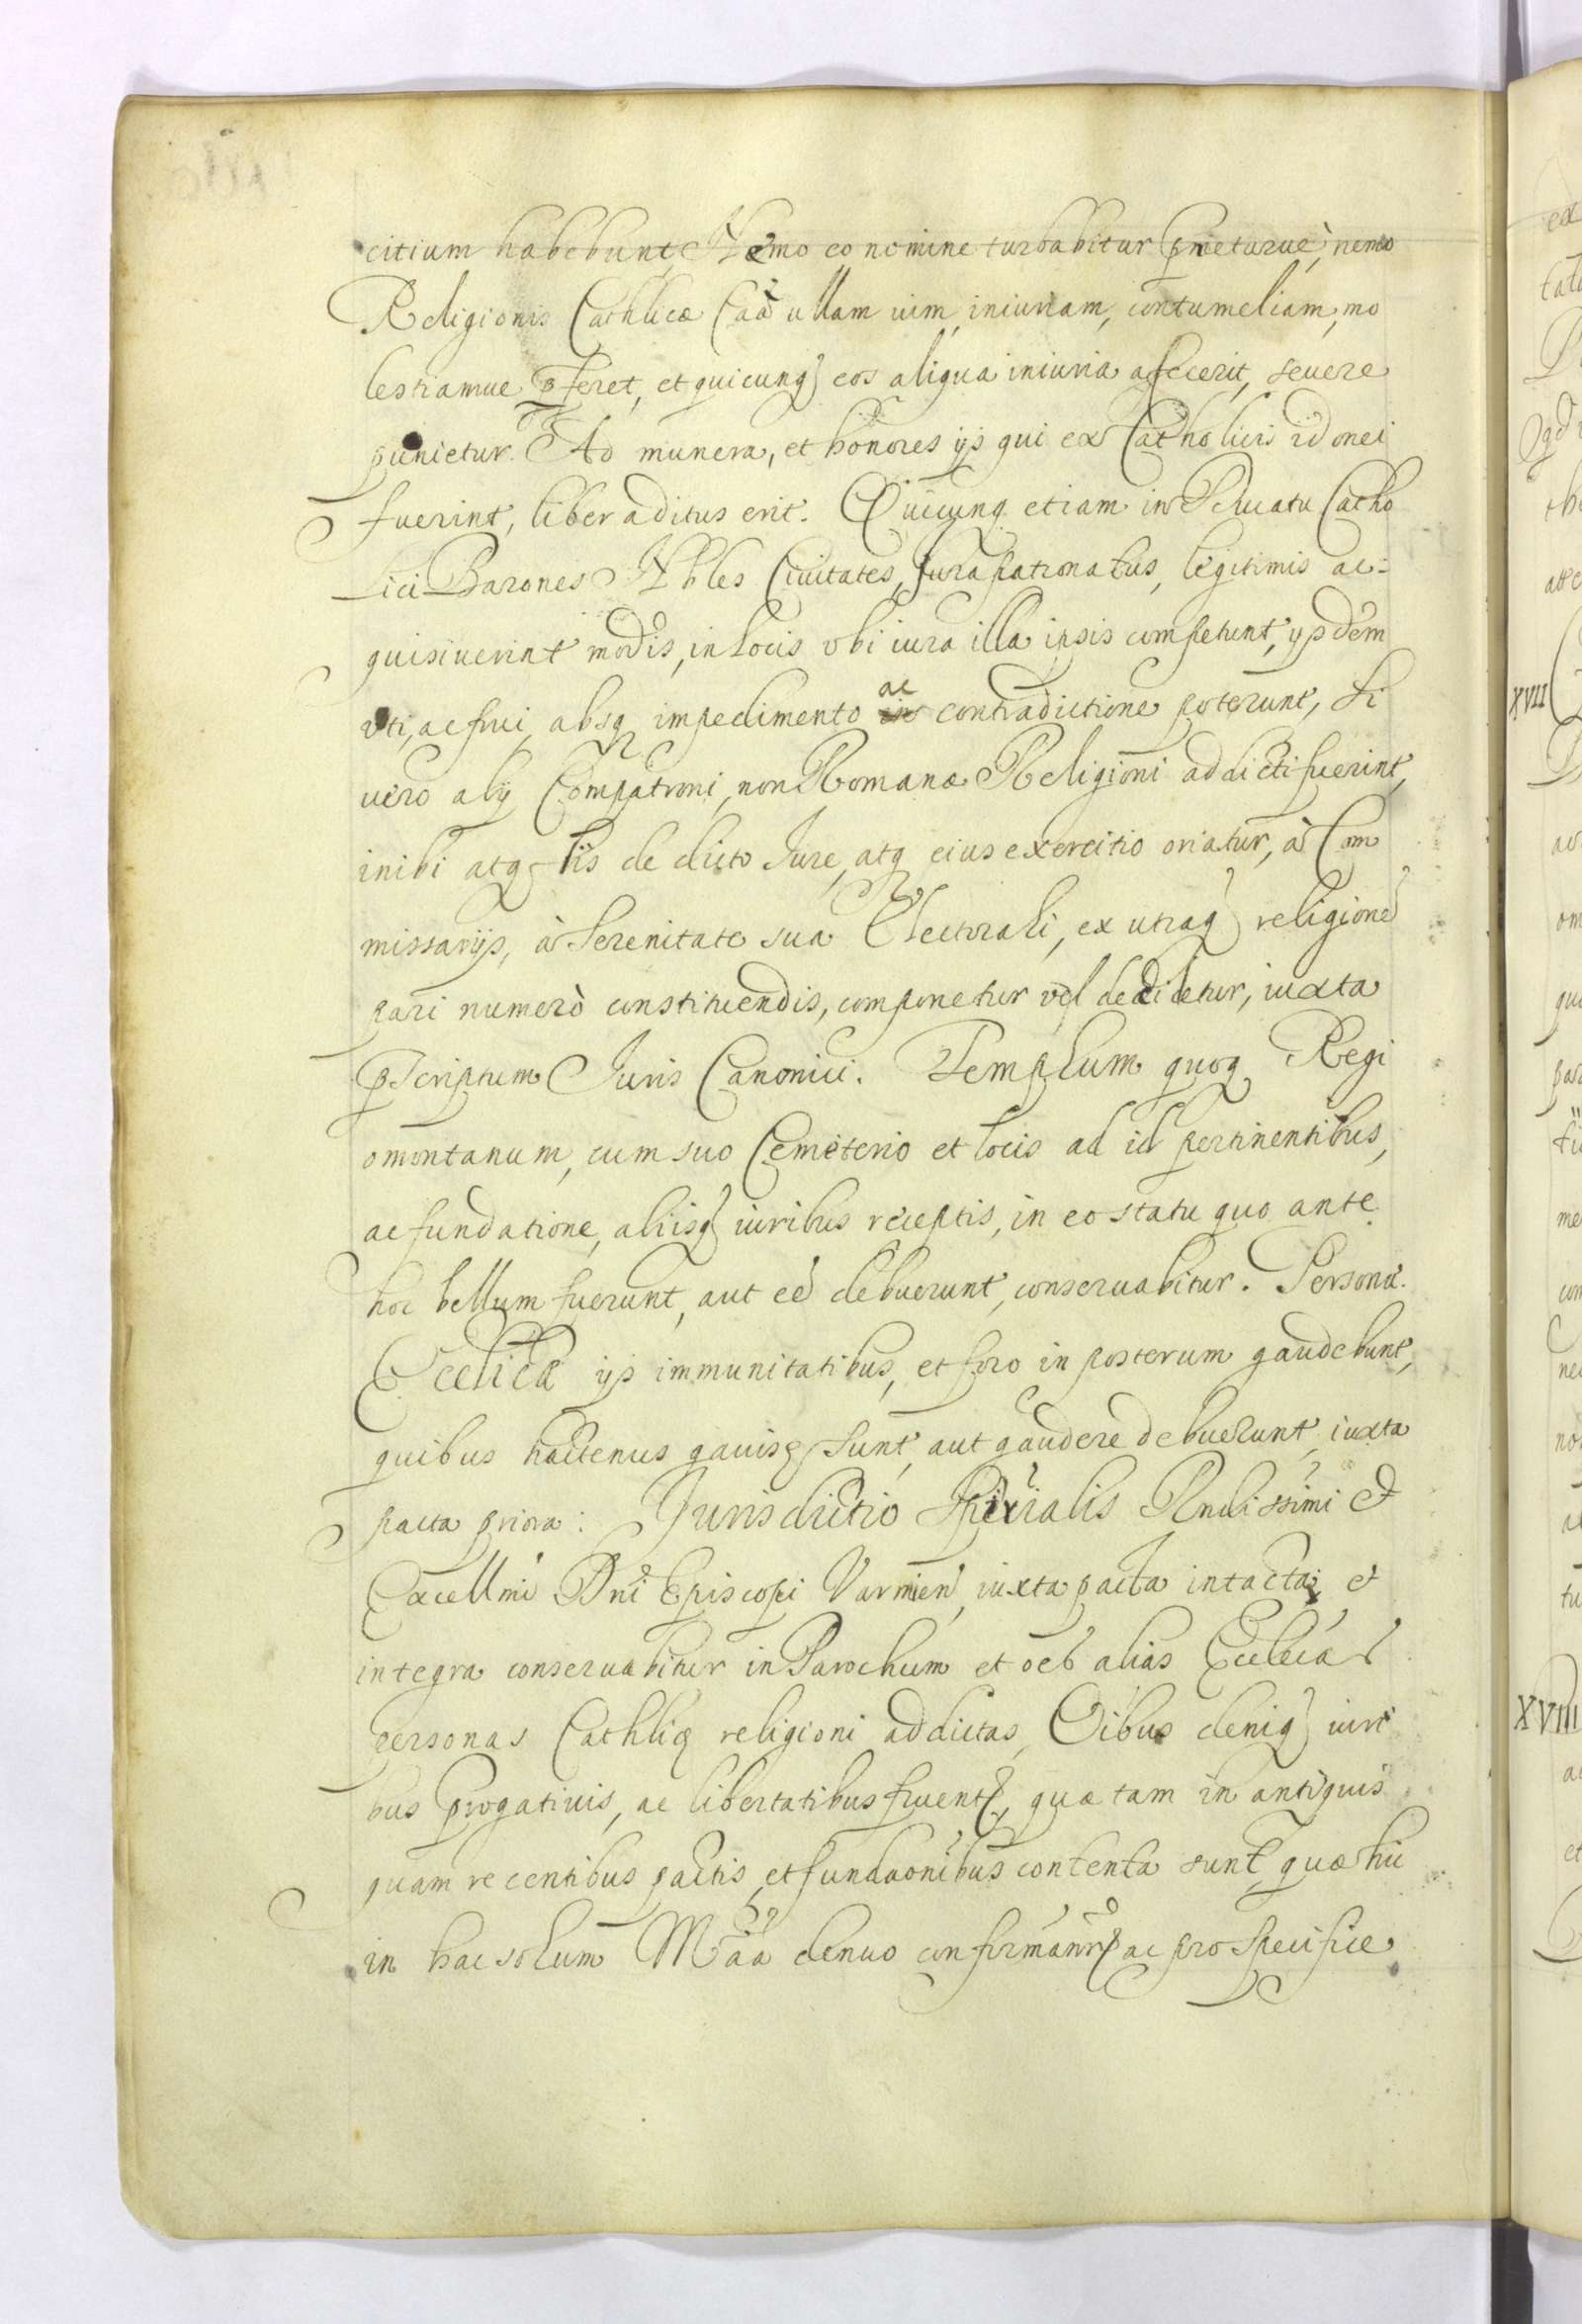 citium habebunt, Nemo eo nomine turbabitur prieturue, nemo
Religionis Cathlicæ Caã ullam uim, iniuriam, contumeliam, mo
lestiamue feret, et quicunq eos aliqua iniuria afecerit, seuere
punietur. Ad munera, et honores ijs qui ex Catholicis idonei
fuerint, liber aditus erit. Quicunq etiam in Ducatu Catho
lici Barones Nbles Ciuitates, Jura patronatus, legitimis ac=
quisiuerint modis, in locis vbi iura illa ipsis competunt, ysdem
vti, ac frui, absq impedimento ac contradictione poterunt, Si
uero alij Compatroni, non Romanæ Religioni addicti fuerint,
inibi atq lis de dicto Jure, atq eius exercitio oriatur, à Com
missarijs, à Serenitate sua Electorali, ex utraq religione
pari numerò constituendis, componetur vel decidetur, iuxta
pscriptum Juris Canonici. Templum quoq Regi
omontanum, cum suo Cemeterio et locis ad id pertinentibus,
ac fundatione, aliisq iuribus receptis, in eo statu quo ante
hoc bellum fuerunt, aut eẽ debuerunt, conseruabitur. Personæ
Ecclicæ ijs immunitatibus, et foro in posterum gaudebunt,
quibus hactenus gauisę sunt, aut gaudere debuerunt, iuxta
pacta priora: Jurisdictio Spiritalis Rndissimi et
Excellmi Dni Episcopi Varmien, iuxta pacta intacta et
integra conseruabitur in Parochum et oẽs alias Ecclicas
personas Cathlicę religioni addictas, Oibus deniq iuri
bus progatiuis, ac libertatibus fruentr, quæ tam in antiquis
quam recentibus pactis, et fundaonibus contenta sunt, quæ hic
in hac solum Maã denuo confirmantr ac pro specifice
ex
XVII
XVIII